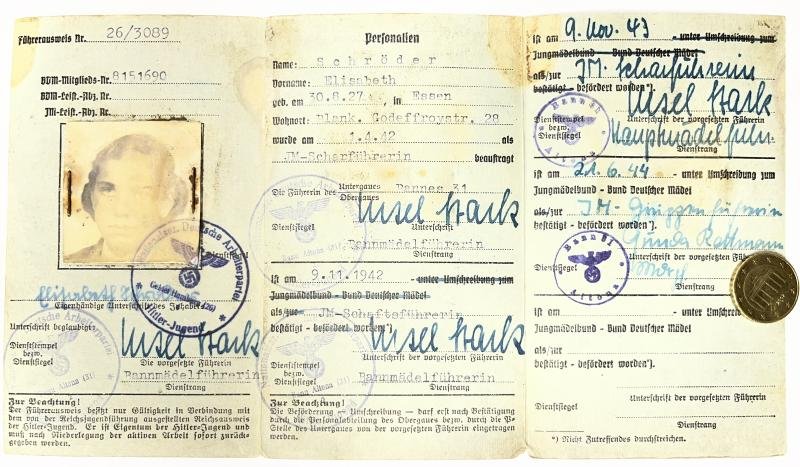 Führerausweis Nr. 26/3089
BDM-Mitglieds-Nr. 8151690
BDM-Leist.-Abz. Nr.
JM-Leist.-Abz. Nr.
Dienstsiegel
Deutsche Arbeiterpartei
Hitler-Jugend
Elisabeth
Eigenhändige Unterschrift des Inhabers
Unterschrift beglaubigt:
Ursel Stark
Dienststempel
bezw.
Dienstsiegel
Die vorgesetzte Führerin
Bannmädelführerin
Dienstrang
Zur Beachtung!
Der Führerausweis besitzt nur Gültigkeit in Verbindung mit
dem von der Reichsjugendführung ausgestellten Reichsausweis
der Hitler-Jugend. Er ist Eigentum der Hitler-Jugend und
muß nach Niederlegung der aktiven Arbeit sofort zurück-
gegeben werden.
Personalien
Name: Schröder
Vorname: Elisabeth
geb. am 30.8.27 in Essen
Wohnort: Blank. Godeffroystr. 28
wurde am 1.4.42 als
JM-Scharführerin beauftragt
Die Führerin des Untergaues Bannes 31
Obergaues
Ursel Stark
Dienstsiegel Unterschrift
Bannmädelführerin
Dienstrang
ist am 9.11.1942 - unter Umschreibung zum
Jungmädelbund - Bund Deutscher Mädel
als/zur JM-Schaftsführerin
bestätigt - befördert worden*).
Ursel Stark
Dienststempel
bezw.
Dienstsiegel
Unterschrift der vorgesetzten Führerin
Bannmädelführerin
Dienstrang
Zur Beachtung!
Die Beförderung - Umschreibung - darf erst nach Bestätigung
durch die Personalabteilung des Obergaues bezw. durch die P-
Stelle des Untergaues von der vorgesetzten Führerin eingetragen
werden.
ist am 9. Nov. 43 - unter Umschreibung zum
Jungmädelbund - Bund Deutscher Mädel
als/zur JM. Scharführerin
bestätigt - befördert worden*).
Ursel Stark
Dienststempel
bezw.
Dienstsiegel
Unterschrift der vorgesetzten Führerin
Hauptmädelführ.
Dienstrang
Bann 31
Altona
ist am 21.6.44 - unter Umschreibung zum
Jungmädelbund - Bund Deutscher Mädel
als/zur JM-Gruppenführerin
bestätigt - befördert worden*).
Dienstsiegel
Dienstrang
Bann 31
Altona
ist am - unter Umschreibung zum
Jungmädelbund - Bund Deutscher Mädel
als/zur
bestätigt - befördert worden*).
Dienstsiegel
Unterschrift der vorgesetzten Führerin
Dienstrang
*) Nicht Zutreffendes durchstreichen.